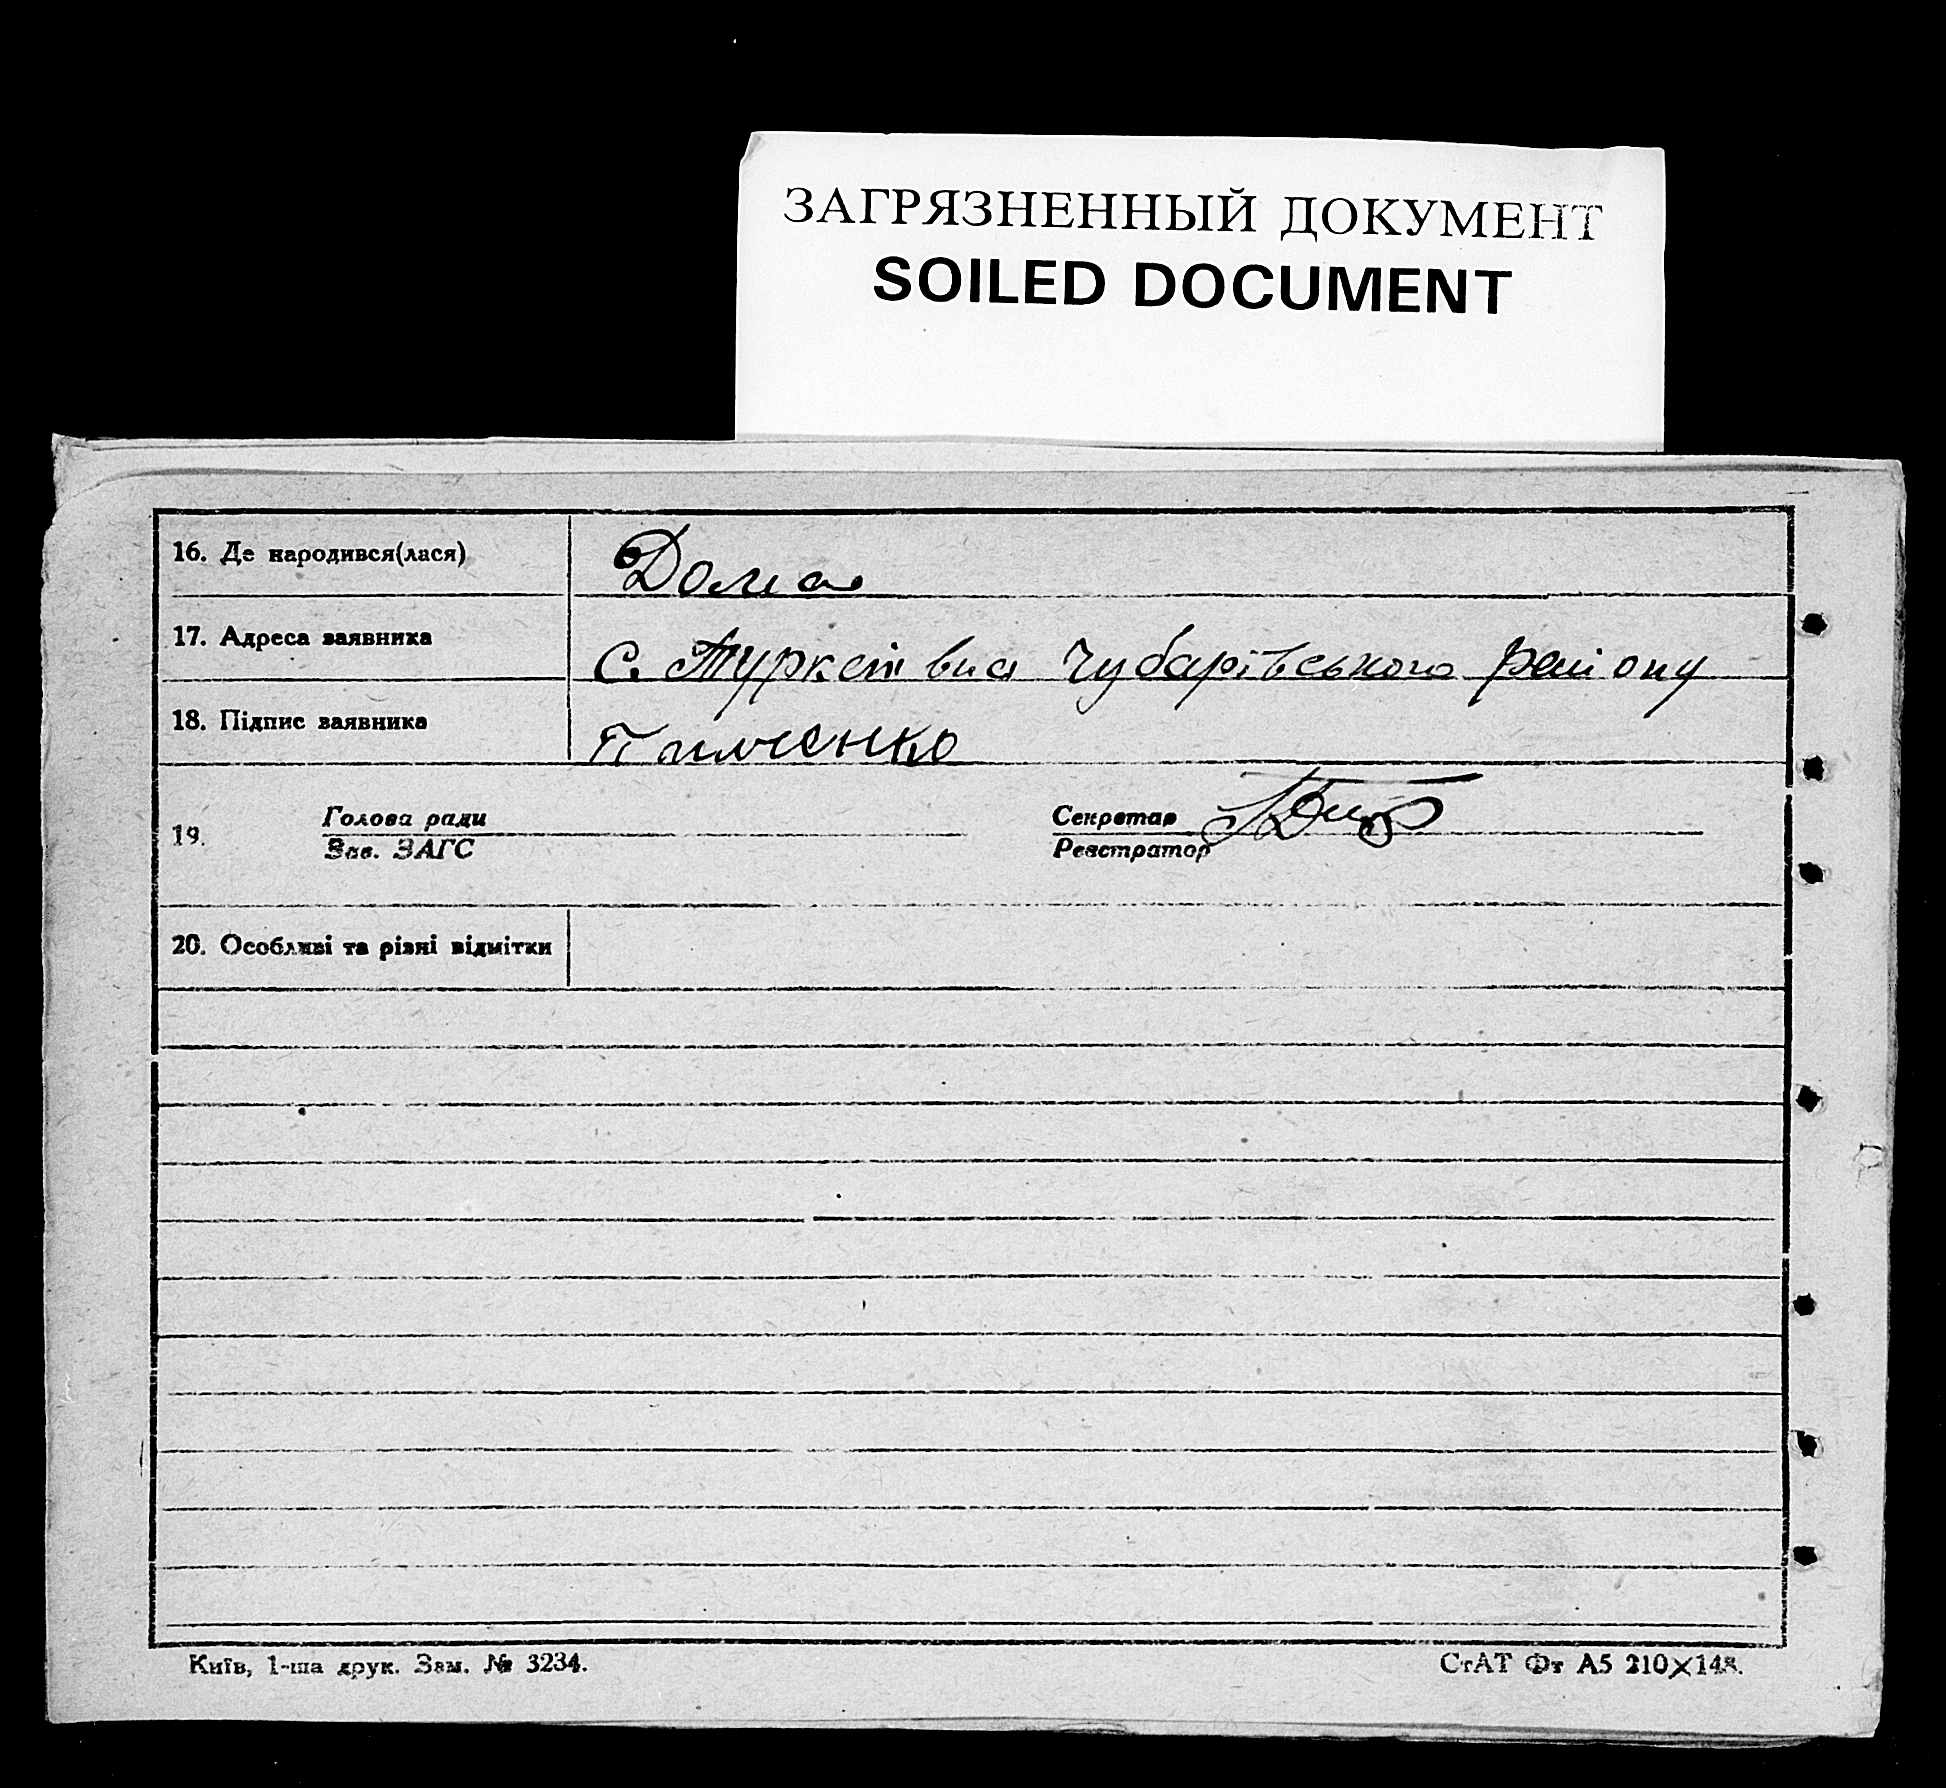 ЗАГРЯЗНЕННЫЙ ДОКУМЕНТ
SOILED DOCUMENT
16. Де народився(лася) Дома
17. Адреса заявника с. Туркенівка Чубарівського району
18. Підпис заявника
19. Голова ради Секретар
Зав. ЗАГС Реєстратор
20. Особливі та різні відмітки
Київ, 1-ша друк. Зам. № 3234. СтАТ Фт А5 210×148.